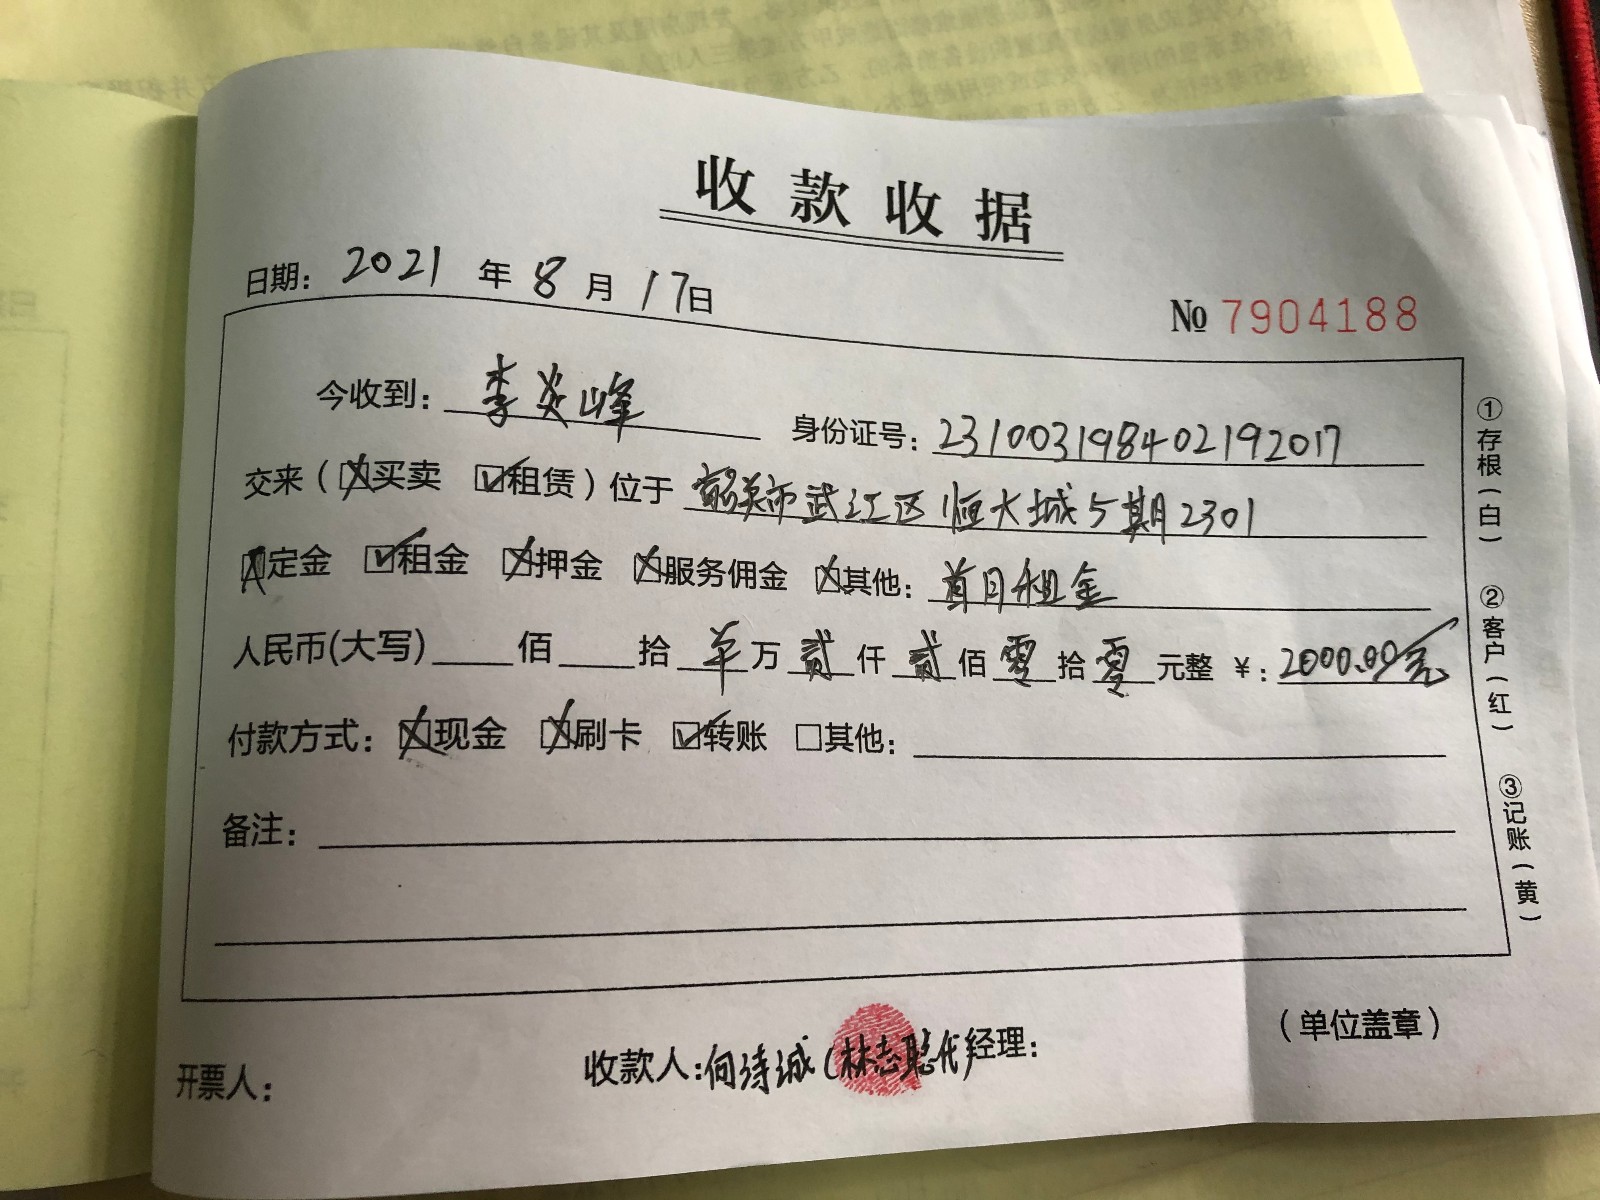 收款收据
日期: 2021 年 8 月 17日
№ 7904188
今收到: 李炎峰 身份证号: 231003198402192017
交来(☒买卖 ☑租赁)位于 韶关市武江区恒大城5期2301
☒定金 ☑租金 ☒押金 ☒服务佣金 ☒其他: 首月租金
人民币(大写)____佰____拾 羊 万 贰 仟 贰 佰 零 拾 零 元整 ¥: 2000.00元
付款方式: ☒现金 ☒刷卡 ☑转账 ☐其他:
备注:
开票人: 收款人: 何诗诚(林志聪代) 经理: (单位盖章)
①存根(白) ②客户(红) ③记账(黄)